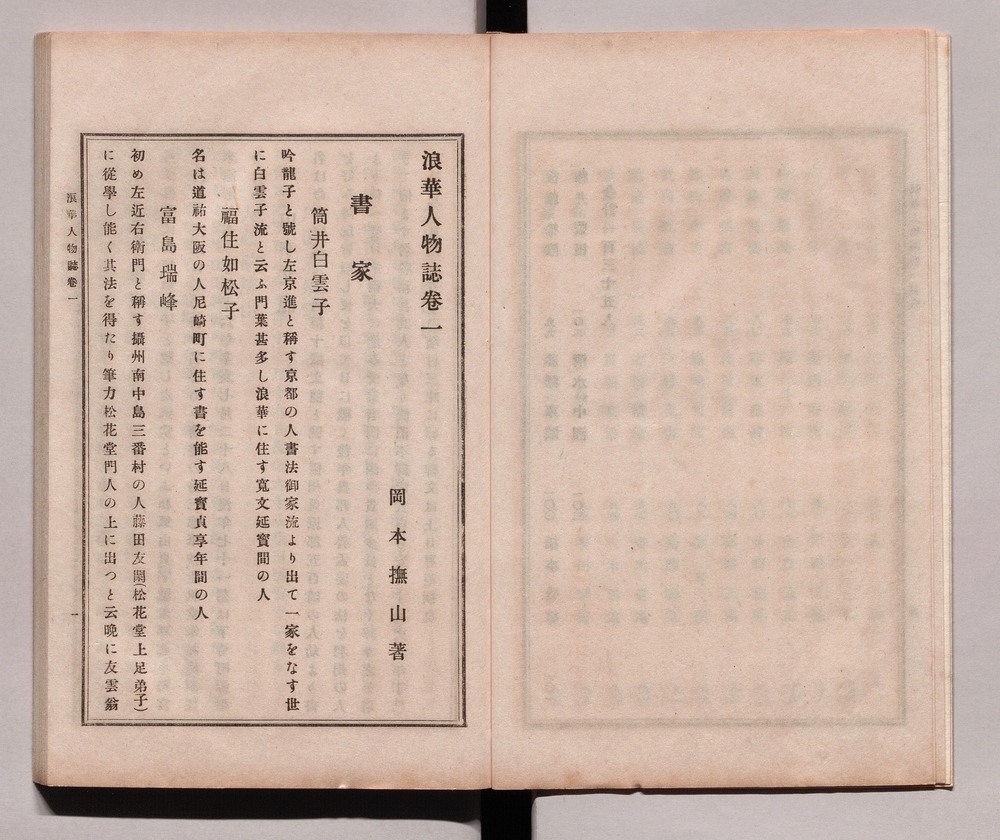 浪華人物誌卷一
岡本撫山著
書家
筒井白雲子
吟龍子と號し左京進と稱す京都の人書法御家流より出て一家をなす世
に白雲子流と云ふ門葉甚多し浪華に住す寬文延寶間の人
福住如松子
名は道祐大阪の人尼崎町に住す書を能す延寶貞享年間の人
富島瑞峰
初め左近右衛門と稱す攝州南中島三番村の人藤田友閑(松花堂上足弟子)
に從學し能く其法を得たり筆力松花堂門人の上に出つと云晩に友雲翁
浪華人物誌卷一
一